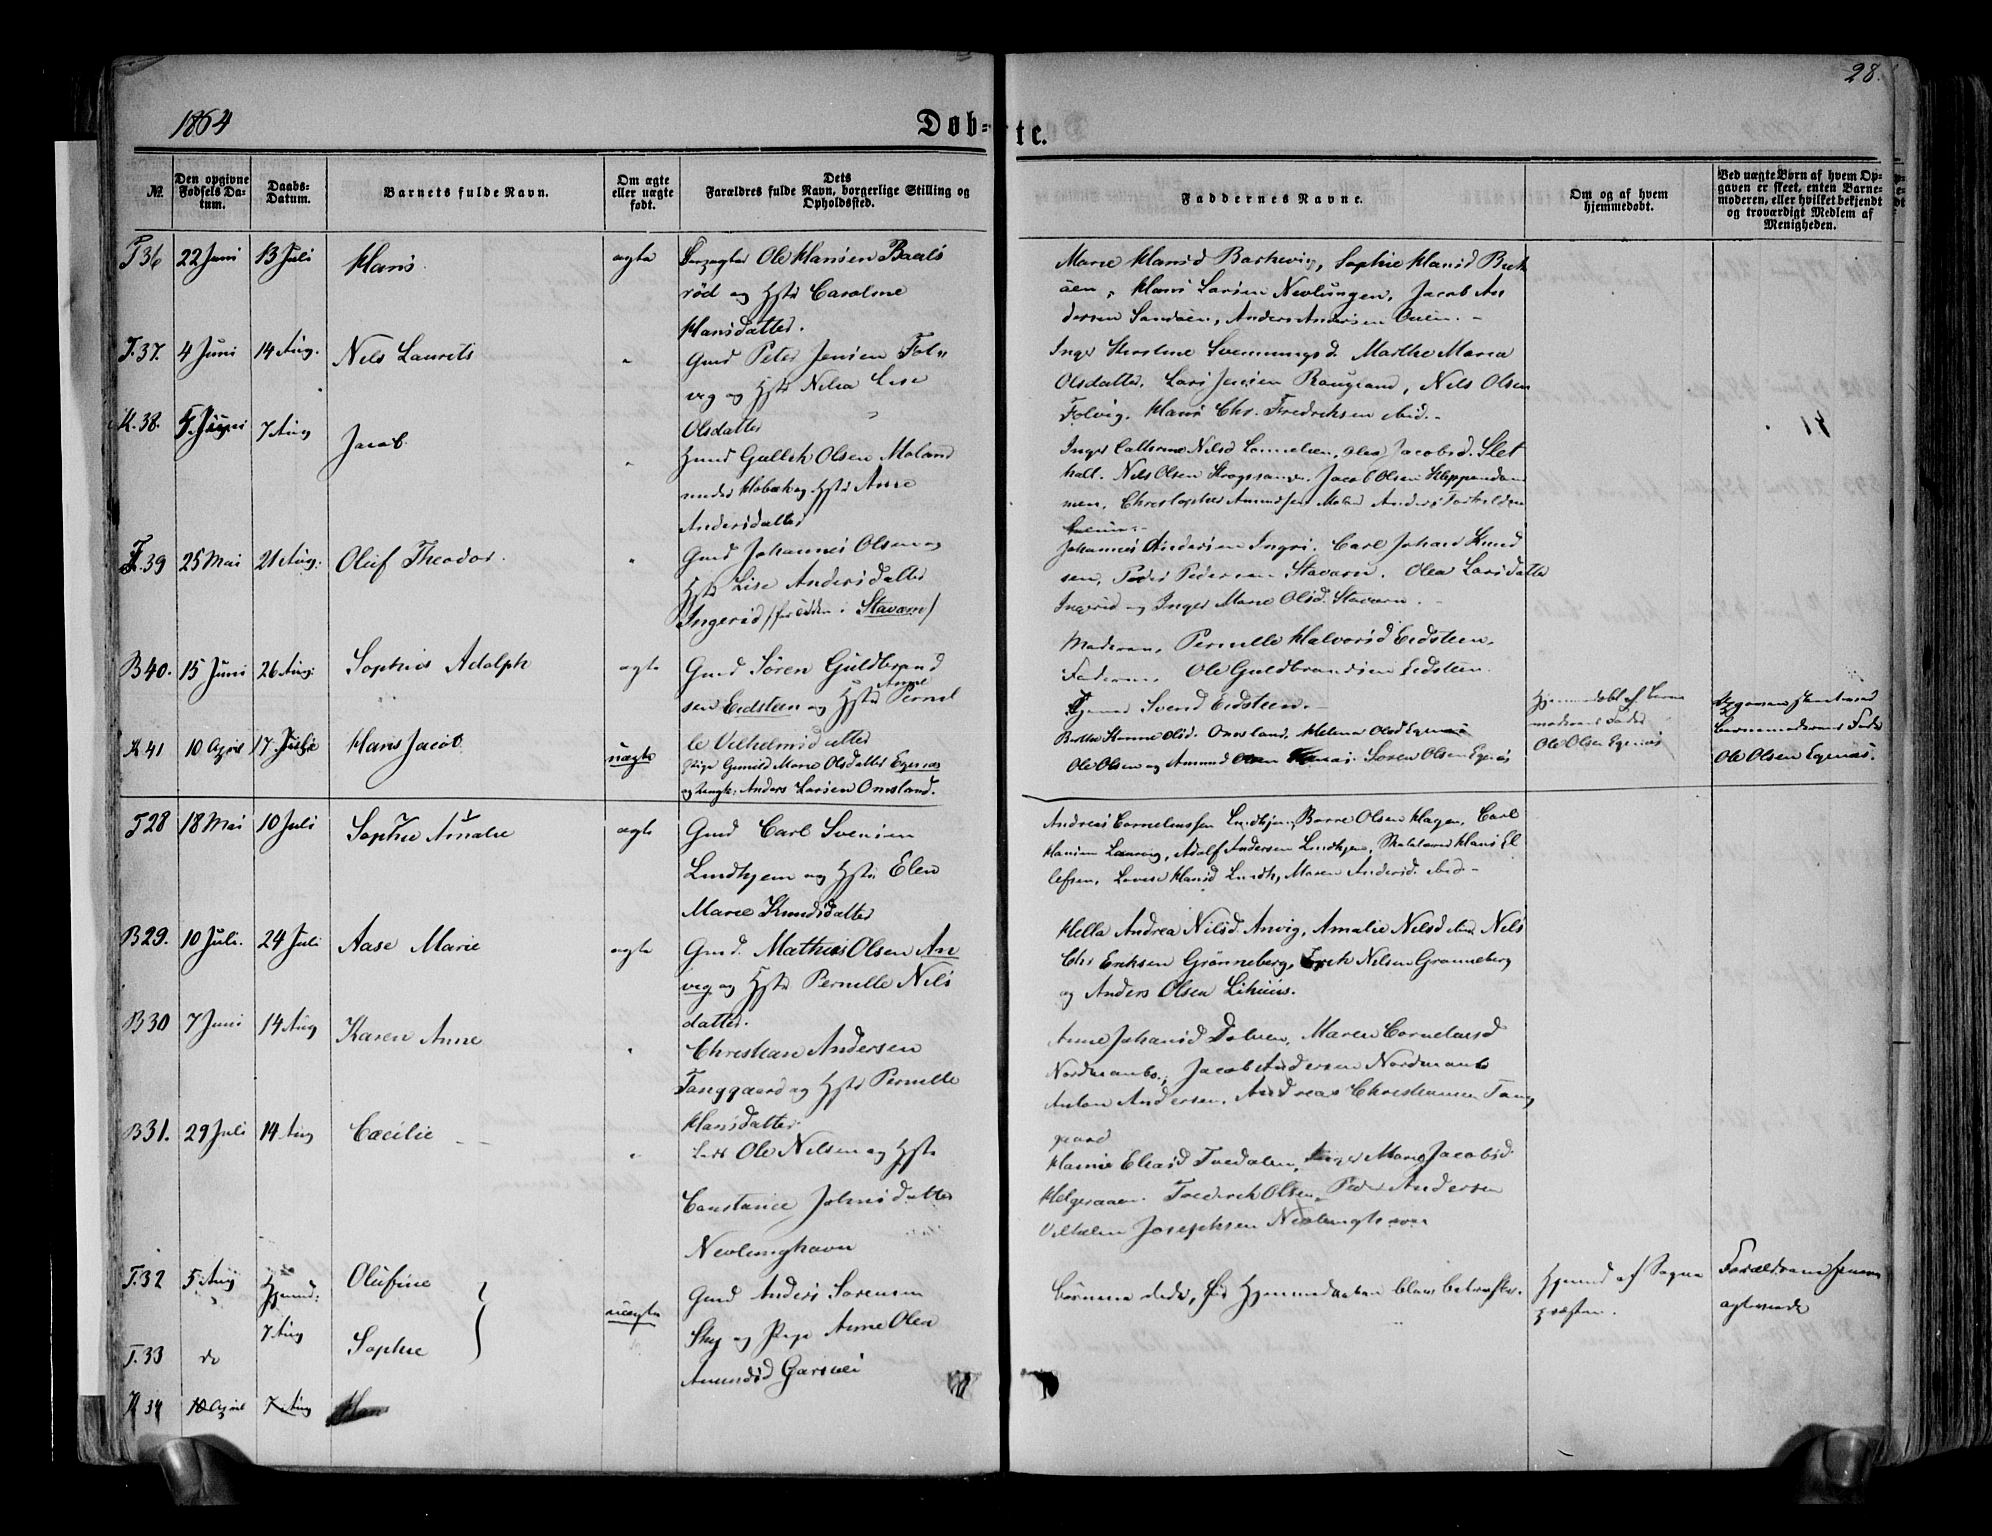 28.
1864
Døb-
te.
№
Den opgivne Fødsels Datum.
Daabs-Datum.
Barnets fulde Navn.
Om ægte eller uægte født.
Dets Forældres fulde Navn, borgerlige Stilling og Opholdssted.
Faddernes Navne.
Om og af hvem hjemmedøbt.
Ved uægte Børn af hvem Opgaven er skeet, enten Barnemoderen, eller hvilket bekjendt og troværdigt Medlem af Menigheden.
T 36 22 Juni 13 Juli Hans ægte Ole Hansen Baals
rød og Hstr Caroline
Hansdatter.
Marie Hansd Barkevig, Sophie Hansd
Hans Larsen Nevlungen, Jacob An
dersen Sandøen, Anders Andersen Øuen. -
T. 37. 4 Juni 14 Aug. Nils Laurits " Gmd Peter Jensen Fol
vig og Hstr Nilia Lise
Olsdatter
Inger Svennungsd. Marthe Maria
Olsdatter, Lars Jensen Naugrand, Nils Olsen
Folvig. Hans Chr. Fredriksen ibid. -
K. 38. 5 Juni 7 Aug Jacob " Hmd Gullik Olsen Moland
under Hobæk og Hstr Anne
Andersdatter
Inger Cathrine Nilsd Olea Jacobsd. Slet
holt. Nils Olsen Jacob Olsen
men, Christopher Amundsen Moland Anders Torkildsen
F. 39 25 Mai 21 Aug: Oluf Theodor. " Gmd Johannes Olsen og
Hstr Lise Andersdatter
Ingerid / i Staværn /
Johannes Andersen Ingri. Carl Johan Knud
sen, Peder Pedersen Staværn. Olea Larsdatter
Ingerid og Inger Marie Olsd. Staværn. -
B 40. 15 Juni 26 Aug: Sophus Adolph ægte Gmd Søren Guldbrand
sen Eidsteen og Hstr Anne Pernil
le Vilhelmsdatter
Moderen, Pernille Halvorsd Eidsteen,
Faderen, Ole Guldbrandsen Eidsteen.
Svend Eidsteen. -
K 41 10 April 17 Juli Hans Jacob uægte Pige Gunild Marie Olsdatter Egenæs
og Ungk: Anders Larsen Omsland.
Berthe Hanne Olsd. Omsland, Helena Olsd Egenæs
Ole Olsen og Amund Olsen Søren Olsen Egenæs
Hjemmedøbt af Barne
moderens Fader
Ole Olsen Egenæs
Barnemoderens Fader
Ole Olsen Egenæs.
T 28 18 Mai 10 Juli Sophie Amalie ægte Gmd Carl Svensen
Lindhjem og Hstr. Elen
Marie Knudsdatter
Andreas Corneliussen Lindhjem, Borre Olsen Hagen, Carl
Hansen Adolf Andersen Lindhjem, Hans El
lefsen, Lovise Hansd Lundh, Maren Andersd. ibid -
B 29. 10 Juli. 24 Juli Aase Marie ægte Gmd. Mathias Olsen An
vig og Hstr Pernille Nils
datter.
Hella Andrea Nilsd. Anvig, Amalie Nilsd ibid Nils
Chr Eriksen Grønneberg, Erik Nilsen Grønneberg
og Anders Olsen
B 30 7 Juni 14 Aug Karen Anne " Christian Andersen
Tanggaard og Hstr Pernille
Hansdatter
Anne Johansd Maren Corneliusd
Nordmanbo, Jacob Andersen Nordmanbo
Anton Andersen, Andreas Christiansen Tang
gaard
B 31. 29 Juli 14 Aug Cæcilie - - " Lods Ole Nilsen og Hstr
Constance Johnsdatter
Nevlunghavn
Elisd Tvedalen, Inger Marie Jacobsd.
Helgeraaen. Frederik Olsen, Peder Andersen
Vilhelm Josephsen Nevlunghavn
T. 32 5 Aug Hjemd: Olufine
7 Aug
T. 33 do Sophie uægte Gmd Anders Sørensen
Sky og Pige Anne Olea
Amundsd
Børnene døde, før Hjemmedaaben blev bekræftet.
Hjemd af Sogne
præsten.
Forældrene
K 34 10 April 7 Aug Han